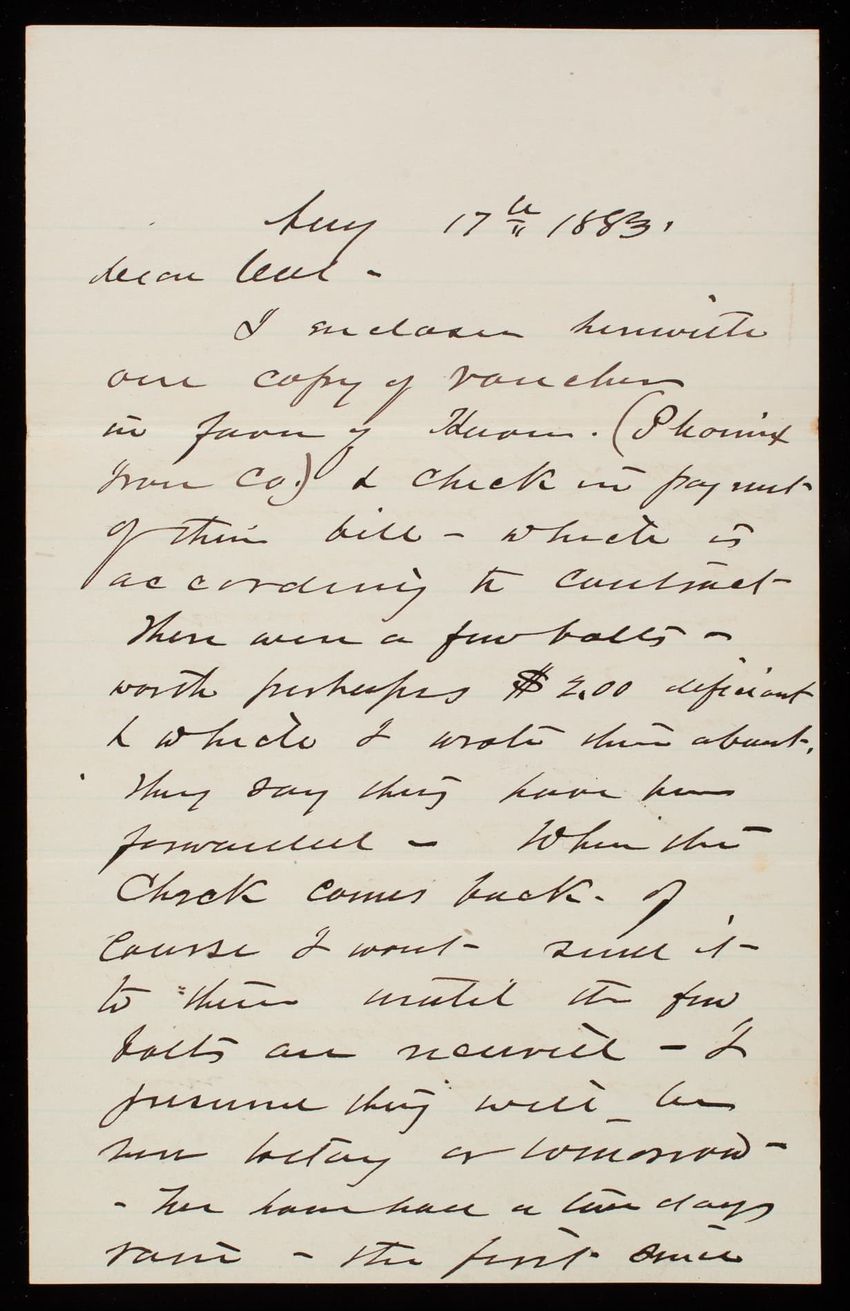 Aug 17th 1883.
Dear Col -
I enclose herewith
one copy of voucher
in favor of (Phoenix
Iron Co.) & check in payment
of their bill - which is
according to contract -
There were a few bolts -
worth perhaps $2.00 deficient
& which I wrote them about.
They say they have been
forwarded - When the
Check comes back - of
course I wont send it -
to them until the few
bolts are received - I
presume they will be
here today or tomorrow -
- We have had a two days
rain - the first since